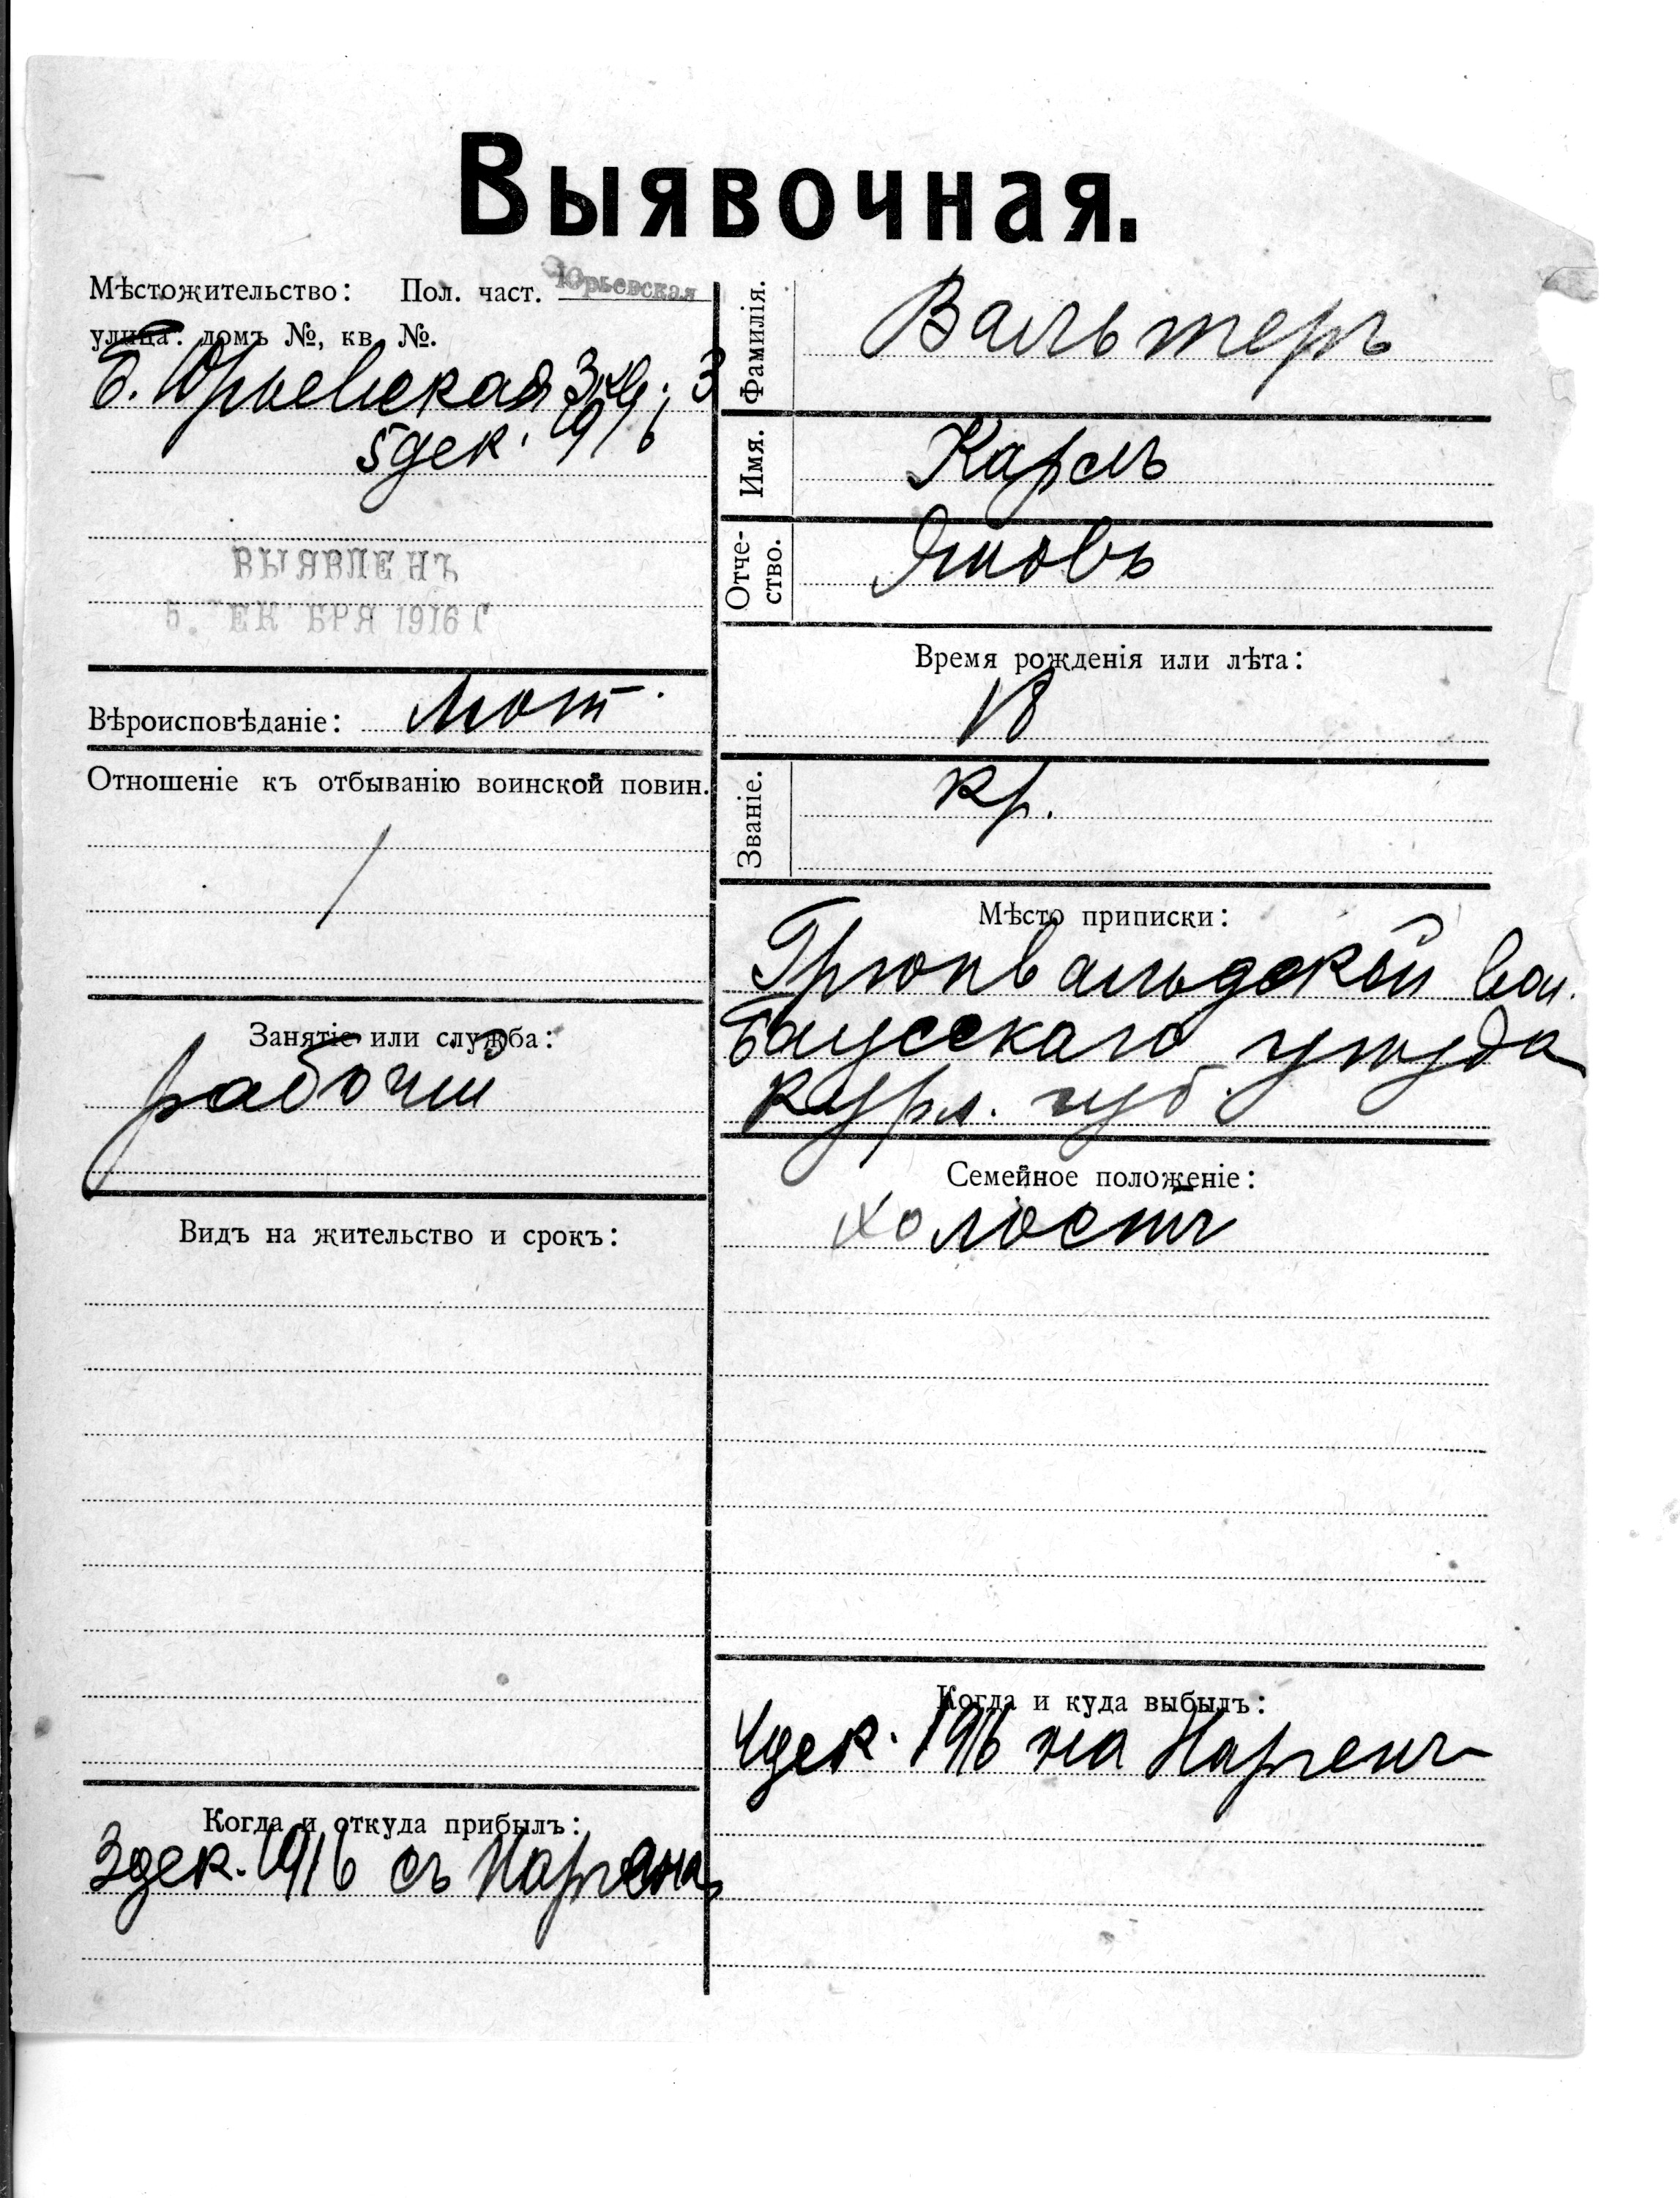 Выявочная.
Мѣстожительство: Пол. част. Юрьевская
улица: домъ №, кв. №.
Б. Юрьевская 3, кв. 3
5 дек. 1916
ВЫЯВЛЕНЪ
5. ЕК БРЯ 1916 Г
Вѣроисповѣданіе: Лют.
Отношеніе къ отбыванію воинской повин.
Занятіе или служба:
рабочій
Видъ на жительство и срокъ:
Когда и откуда прибылъ:
3 дек. 1916 съ Наргена
Фамилія. Вальтеръ
Имя. Карлъ
Отче-
ство. Яковъ
Время рожденія или лѣта:
18
Званіе. кр.
Мѣсто приписки:
Грюнвальдской вол.
Баусскаго уѣзда
Курл. губ.
Семейное положеніе:
холостъ
Когда и куда выбылъ:
4 дек. 1916 на Наргенъ